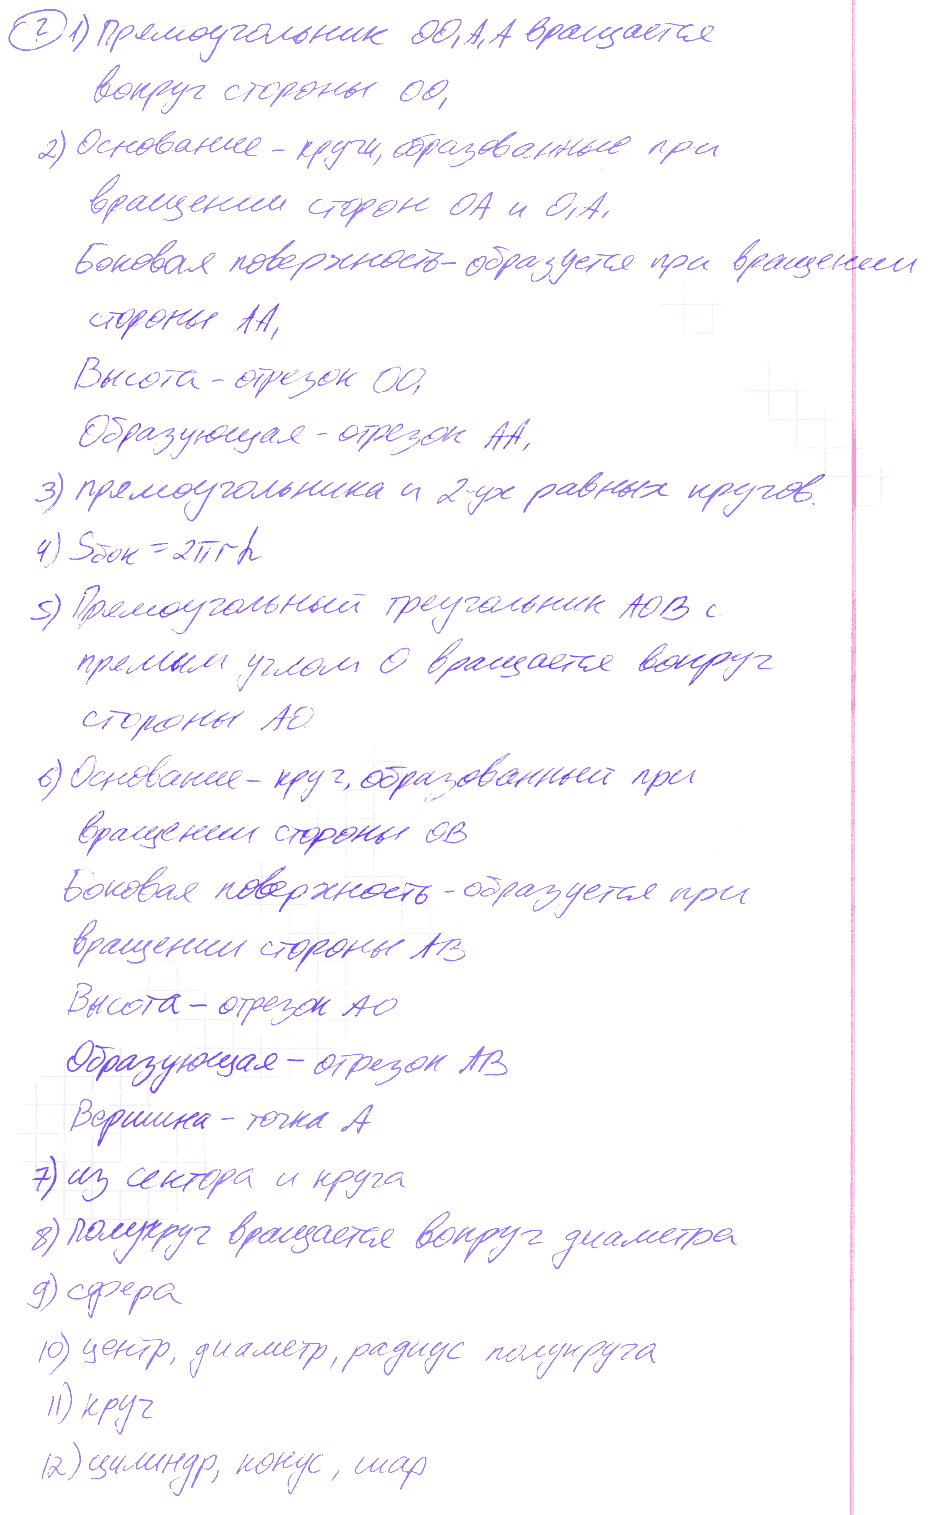 ? 1) Прямоугольник OO₁A₁A вращается
вокруг стороны OO₁
2) Основание - круги, образованные при
вращении сторон OA и O₁A₁
Боковая поверхность - образуется при вращении
стороны AA₁
Высота - отрезок OO₁
Образующая - отрезок AA₁
3) прямоугольника и 2-ух равных кругов.
4) Sбок = 2πrh
5) Прямоугольный треугольник AOB с
прямым углом O вращается вокруг
стороны AO
6) Основание - круг, образованный при
вращении стороны OB
Боковая поверхность - образуется при
вращении стороны AB
Высота - отрезок AO
Образующая - отрезок AB
Вершина - точка A
7) из сектора и круга
8) Полукруг вращается вокруг диаметра
9) сфера
10) центр, диаметр, радиус полукруга
11) круг
12) цилиндр, конус, шар